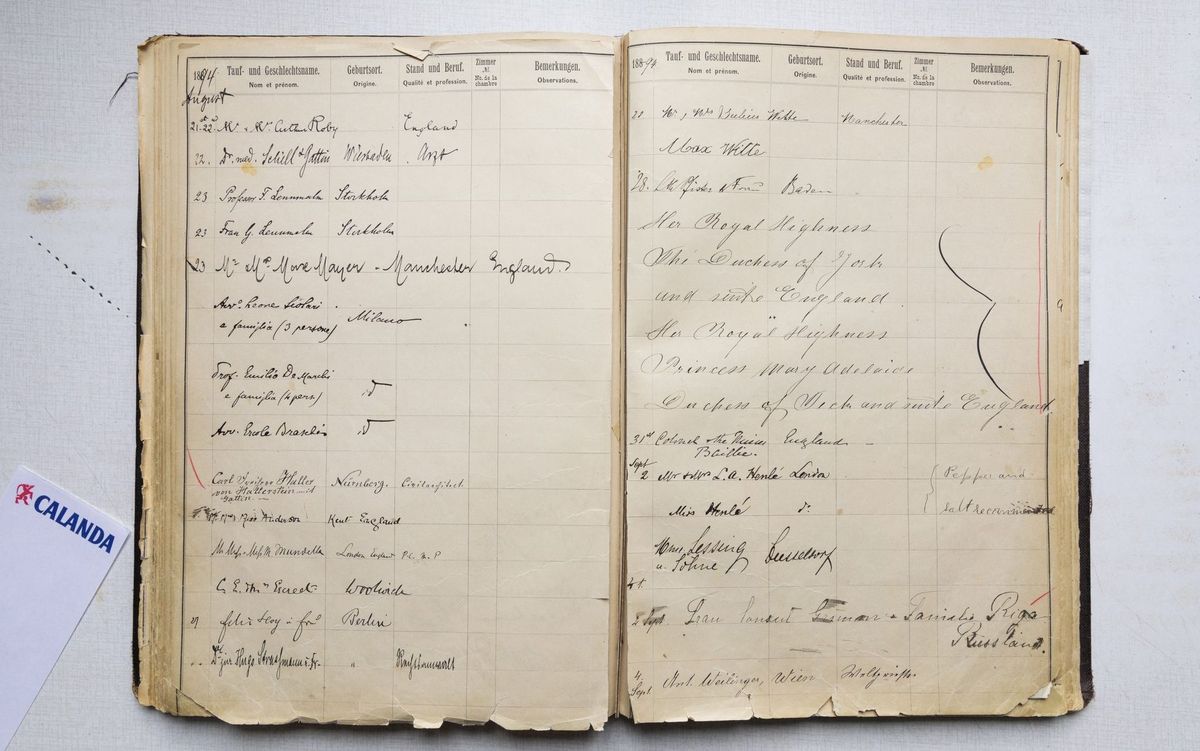 1894 Tauf- und Geschlechtsname. Geburtsort. Stand und Beruf. Zimmer № Bemerkungen.
Nom et prénom. Origine. Qualité et profession. No. de la chambre Observations.
August
21st 22d Mr & Mrs Arthur Roby England
22. Dr. med. Gattin Wiesbaden Arzt
23 Professor F. Lennmalm Stockholm
23 Frau G. Lennmalm Stockholm
23 Mr & Mrs Mayer - Manchester England
Avvo Leone
e famiglia (3 persone) Milano
Prof. Emilio De Marchi
e famiglia (4 pers) id
Avv. Ercole id
Carl Freiherr Haller
von Hallerstein mit Nürnberg. Civilarchitect
Gattin
Miss Anderson Kent England
Mundella London England P.C. M.P
C. E. Woolwich
29 Felix Berlin
Dr jur Hugo Strassmann u. Fr. " Rechtsanwalt
1894 Tauf- und Geschlechtsname. Geburtsort. Stand und Beruf. Zimmer № Bemerkungen.
Nom et prénom. Origine. Qualité et profession. No. de la chambre Observations.
Mr & Mrs Julius Witte Manchester
Max Witte
28. Pfister & Frau Baden
Her Royal Highness
The Duchess of York
and suite England
Her Royal Highness
Princess Mary Adelaide
Duchess of Teck and suite England
31st Colonel & the Misses England
Baillie.
Sept
2 Mr & Mrs L. A. Henlé London Pepper and
Miss Henlé do salt recommended
Lessing
u. Söhne Duesseldorf
2 Sept Frau Consul & Familie Riga
Russland.
4 Sept Ant. Weilinger, Wien
CALANDA